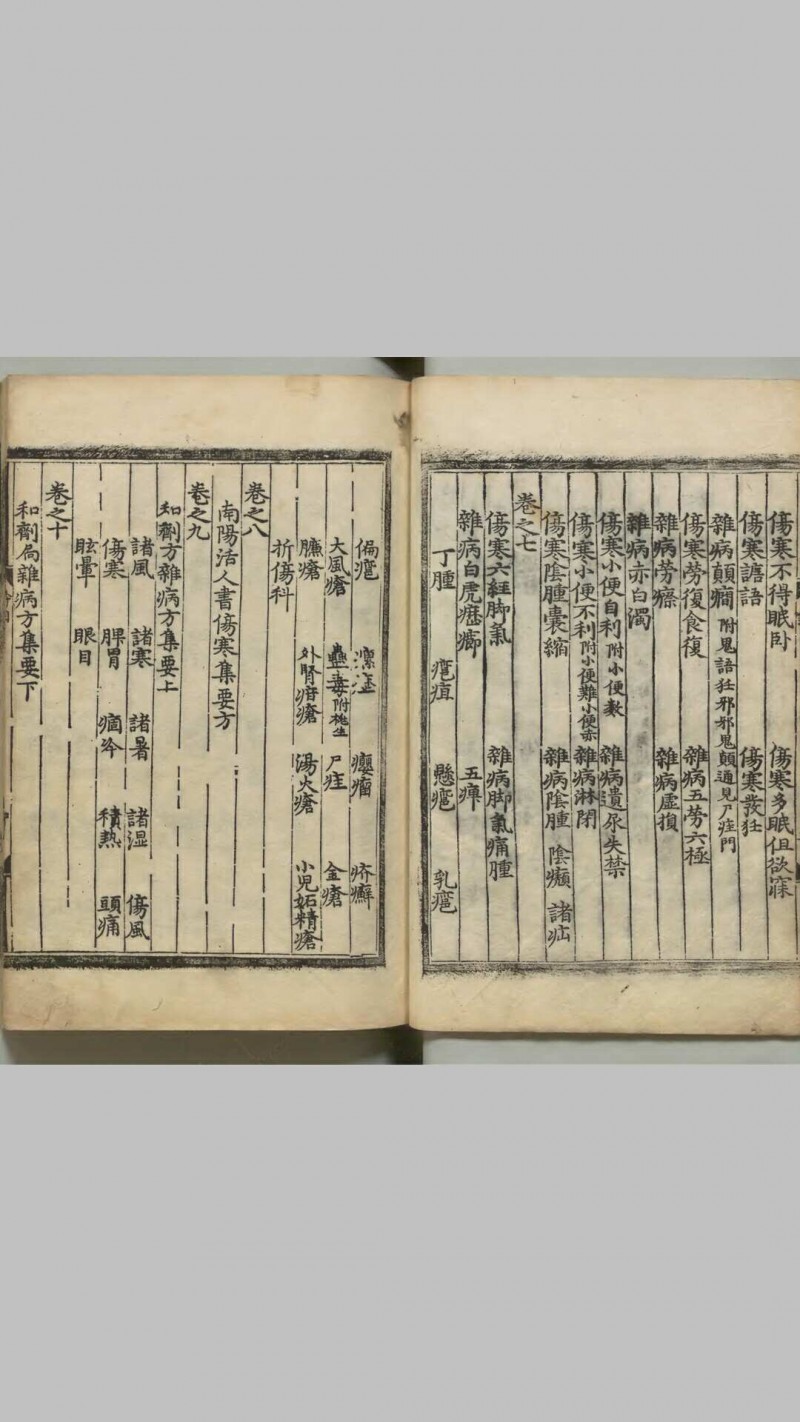 傷寒不得眠卧　傷寒多眠但欲寐
傷寒譫語　傷寒發狂
雜病顛癎附鬼語狂邪邪鬼顛通見尸疰門
傷寒勞復食復　雜病五勞六極
雜病勞瘵　雜病虛損
雜病赤白濁
傷寒小便自利附小便數　雜病遺尿失禁
傷寒小便不利附小便難小便赤　雜病淋閉
傷寒陰腫囊縮　雜病陰腫　陰㿗　諸疝
卷之七
傷寒六經脚氣　雜病脚氣痛腫
雜病白虎歷癤　五痺
丁腫　癰疽　懸癰　乳癰
偏癰　瘰癧　癭瘤　疥癬
大風瘡　蠱毒附挑生　尸疰　金瘡
臁瘡　外腎瘡　湯火瘡　小兒妬精瘡
折傷科
卷之八
南陽活人書傷寒集要方
卷之九
和劑方雜病方集要上
諸風　諸寒　諸暑　諸濕　傷風
傷寒　脾胃　痼冷　積熱　頭痛
眩暈　眼目
卷之十
和劑局雜病方集要下